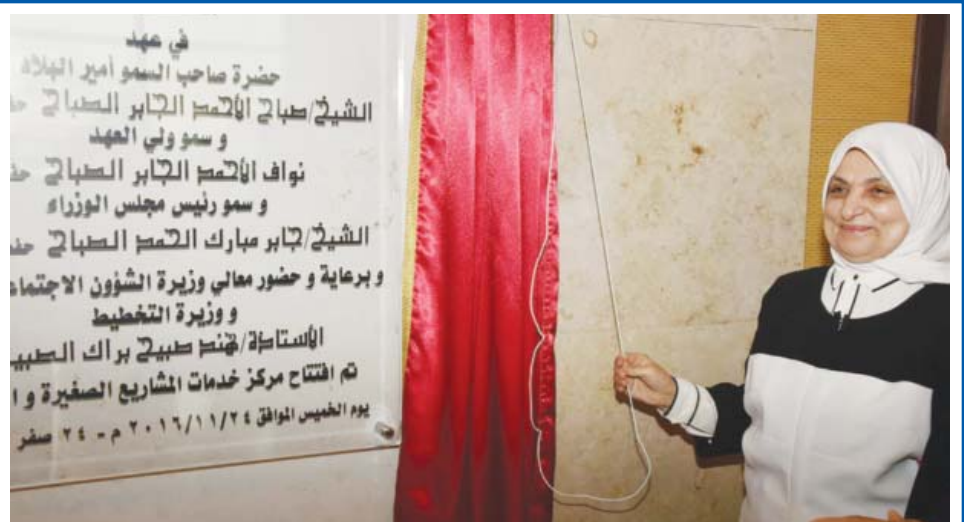 في عهد
حضرة صاحب السمو أمير البلاد
الشيخ/صباح الأحمد الجابر الصباح
و سمو ولي العهد
نواف الأحمد الجابر الصباح
و سمو رئيس مجلس الوزراء
الشيخ/جابر مبارك الحمد الصباح
و برعاية و حضور معالي وزيرة الشؤون
و وزيرة التخطيط
الأستاذة/هند صبيح براك
تم افتتاح مركز خدمات المشاريع الصغيرة و
يوم الخميس الموافق ٢٠١٦/١١/٢٤ م - ٢٤ صفر